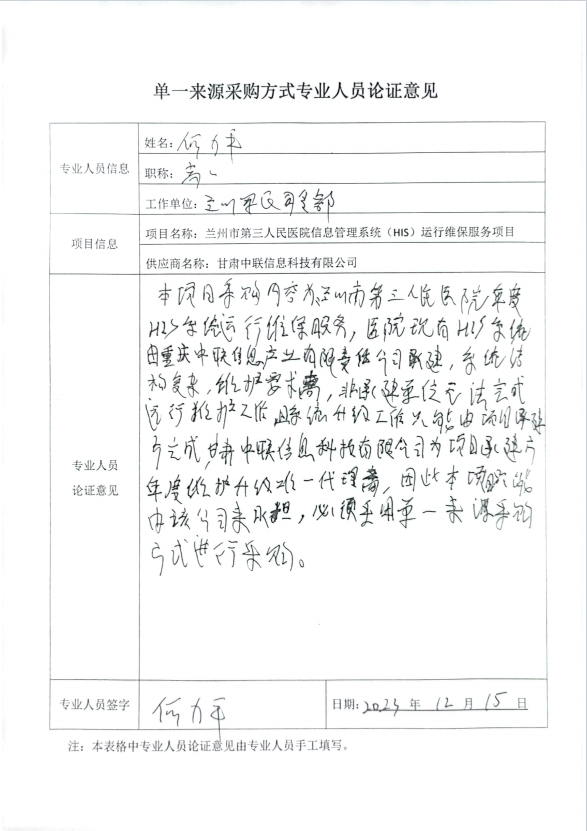 单一来源采购方式专业人员论证意见
专业人员信息
姓名：何力平
职称：高工
工作单位：
项目信息
项目名称：兰州市第三人民医院信息管理系统（HIS）运行维保服务项目
供应商名称：甘肃中联信息科技有限公司
专业人员
论证意见
本项目采购内容为兰州市第三人民医院年度
HIS系统运行维保服务，医院现有HIS系统
由重庆中联信息产业有限责任公司承建，系统结
构复杂，维护要求高，非承建单位无法完成
运行维护工作，且系统升级工作只能由项目承建
方完成，甘肃中联信息科技有限公司为项目承建方
年度维护升级工作唯一代理商，因此本项目只能
由该公司来承担，必须采用单一来源采购
方式进行采购。
专业人员签字
何力平
日期：2023 年 12 月 15 日
注：本表格中专业人员论证意见由专业人员手工填写。